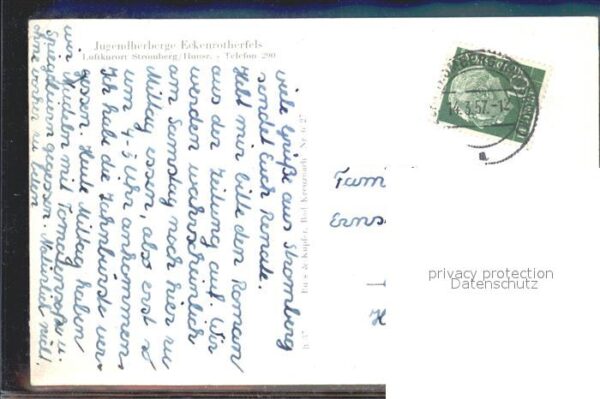 Jugendherberge Eckenrotherfels
Luftkurort Stromberg/Hunsr. - Telefon 290
viele Grüße aus Stromberg
sendet Euch Renate.
Hebt mir bitte den Roman
aus der Zeitung auf. Wir
werden wahrscheinlich
am Samstag noch hier zu
Mittag essen, also erst so
um 4-5 Uhr ankommen.
Ich habe die Zahnbürste ver-
gessen. Heute Mittag haben
wir Nudeln mit Tomatensoße u.
Spiegeleiern gegessen. Natürlich nicht,
ohne vorher zu beten
& Kupfer, Bad Kreuznach
Fam
Erns
H
14.3.57.-12
a
privacy protection
Datenschutz